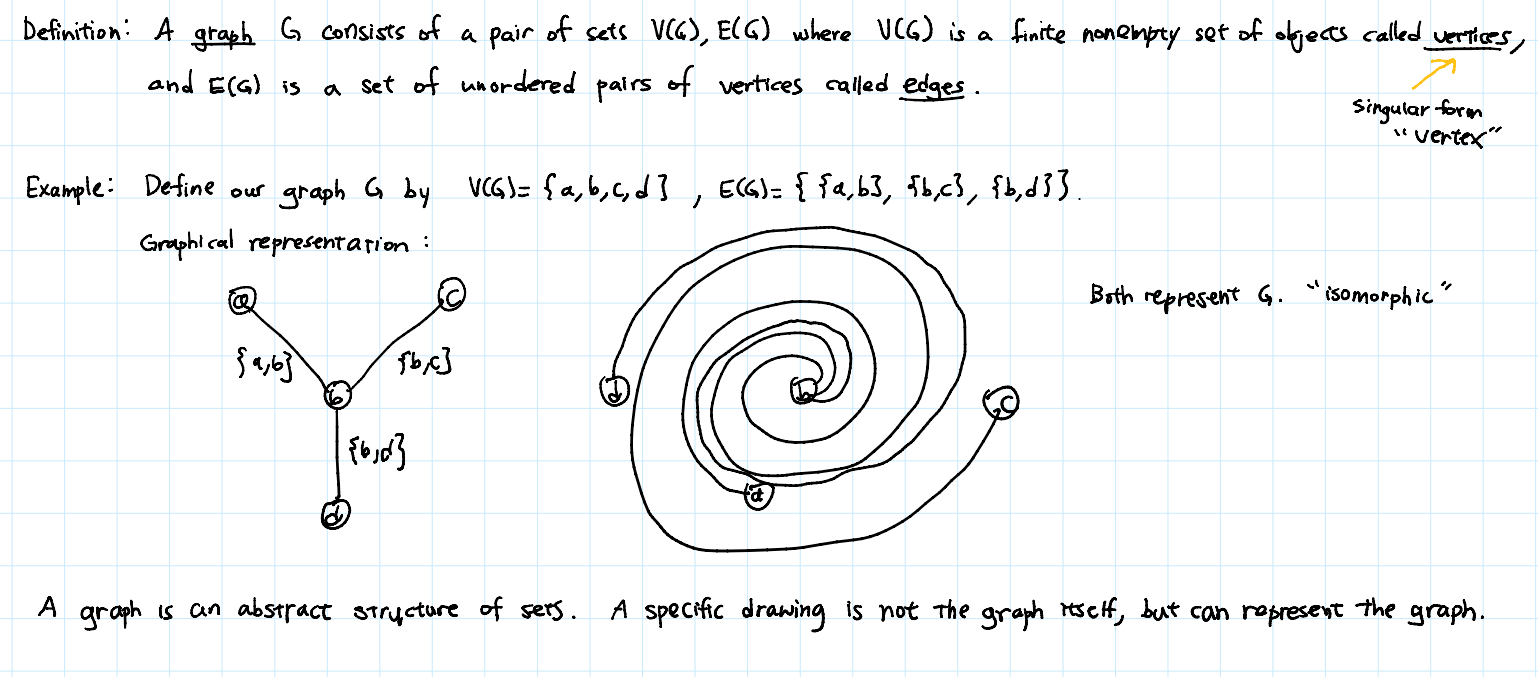 Definition: A graph G consists of a pair of sets V(G), E(G) where V(G) is a finite nonempty set of objects called vertices,
and E(G) is a set of unordered pairs of vertices called edges.
Singular form
"vertex"
Example: Define our graph G by V(G)= {a,b,c,d}, E(G)= { {a,b}, {b,c}, {b,d} }.
Graphical representation:
a
c
{a,b}
{b,c}
b
{b,d}
d
d
b
c
a
Both represent G. "isomorphic"
A graph is an abstract structure of sets. A specific drawing is not the graph itself, but can represent the graph.